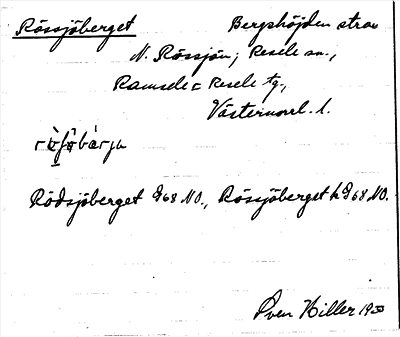 Rössjöberget Bergshöjden strax
N. Rössjön; Resele sn.,
Ramsele o Resele tg.,
Västernorrl. l.
Rödsjöberget G68 NO., Rössjöberget k G68 NO.
Sven Hiller 1950